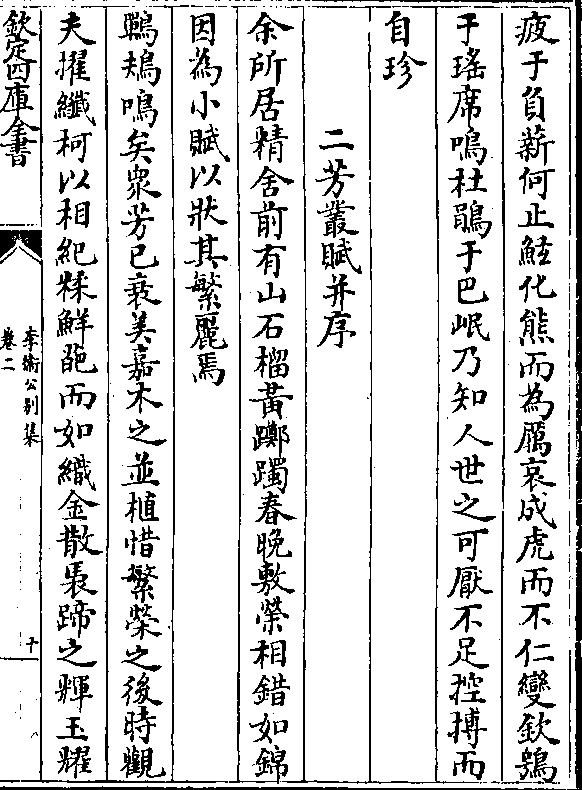 疲于負薪何止鯀化熊而為厲哀成虎而不仁變欽鴞
于瑤席鳴杜鵑于巴岷乃知人世之可厭不足控摶而
自珍
二芳叢賦并序
余所居精舍前有山石榴黃躑躅春晚敷榮相錯如錦
因為小賦以狀其繁麗焉
鶗鴂鳴矣衆芳已衰美嘉木之並植惜繁榮之後時觀
夫擢纖柯以相紀糅鮮葩而如織金散褭蹄之輝玉耀
欽定四庫全書
李衛公別集
卷二
十